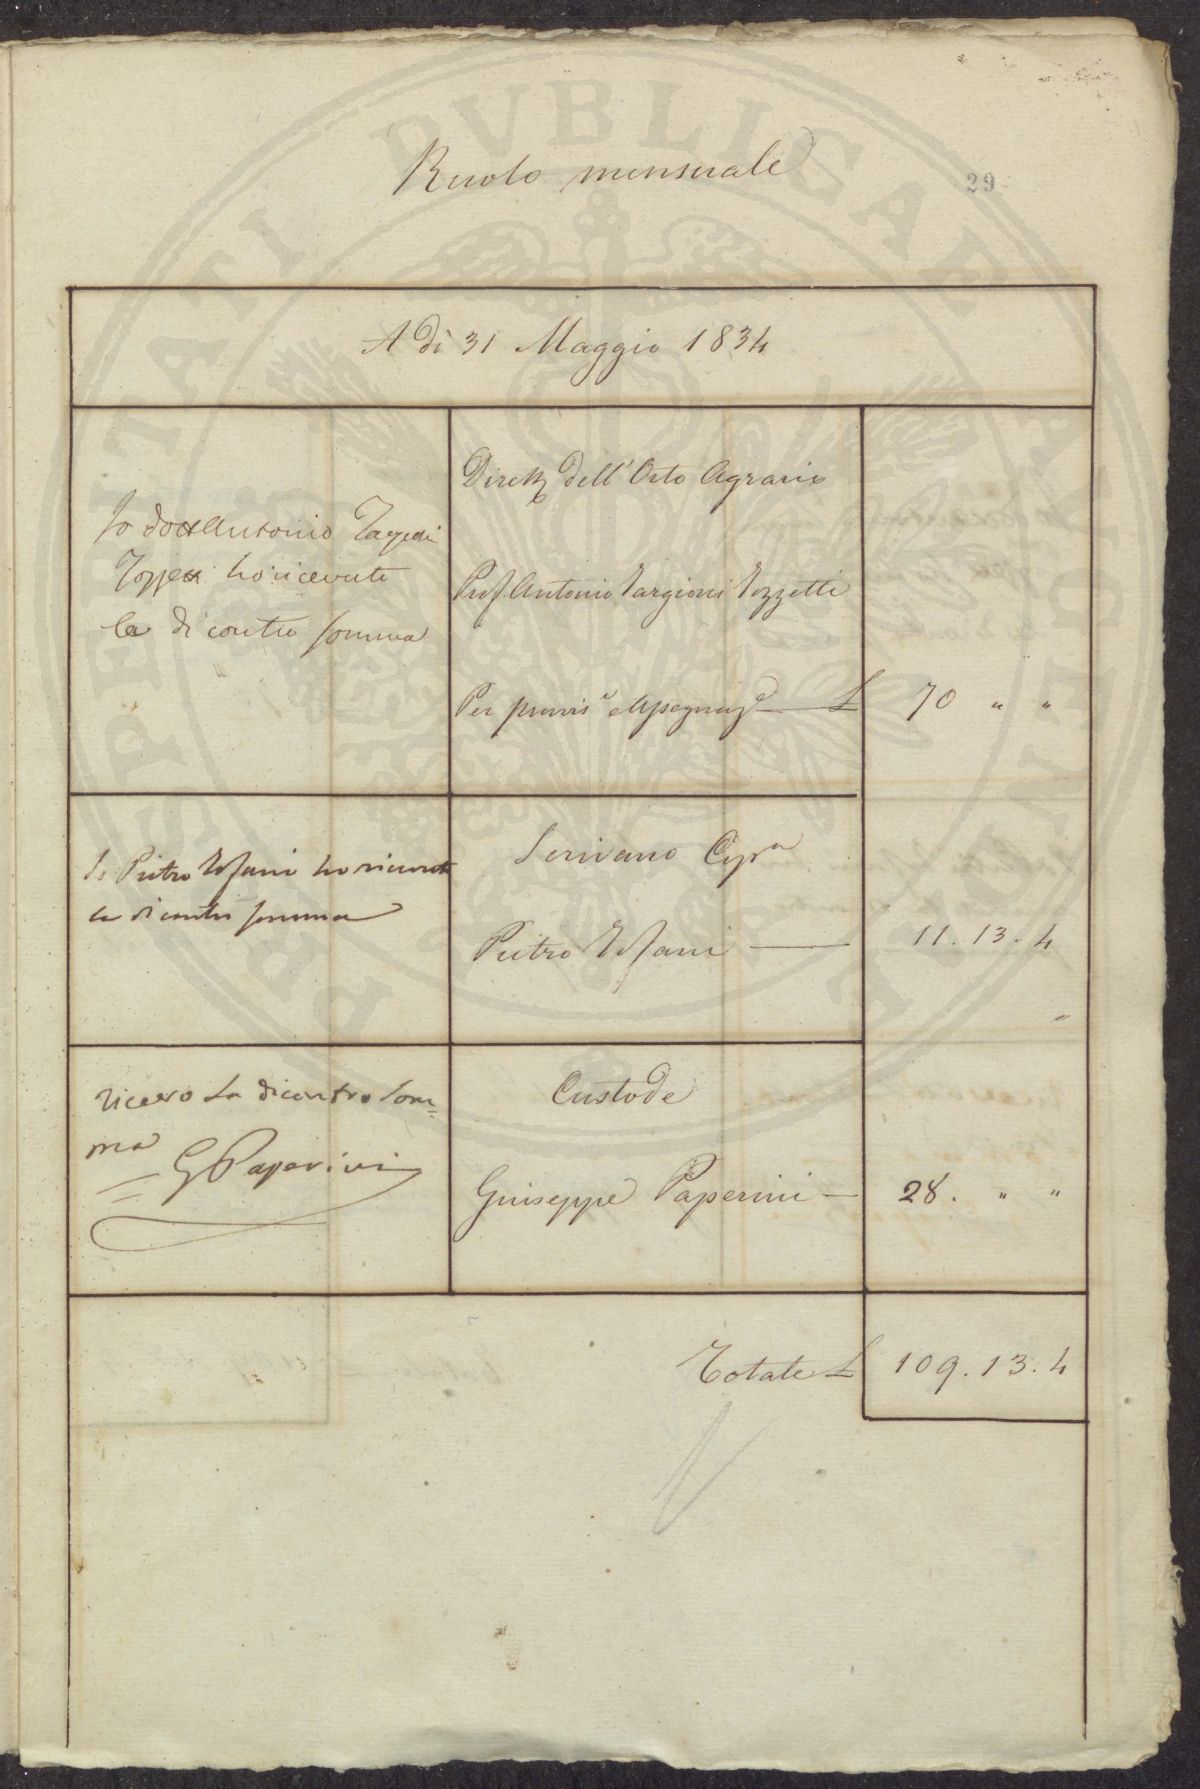 Ruolo mensuale
29
A dì 31 Maggio 1834
Io dott Antonio Targioni
Tozzetti ho ricevuto
la di contro somma
Dirett.e dell'Orto Agrario
Prof Antonio Targioni Tozzetti
Per provvis.e e Assegnaz.e — £ 70 " "
Io Pietro ho ricevuto
la di contro somma
Scrivano Cop.a
Pietro — 11. 13. 4
"
Ricevo La dicontro som=
ma
G Paperini
Custode
Guiseppe Paperini — 28. " "
Totale £ 109. 13. 4
PVBLICAE